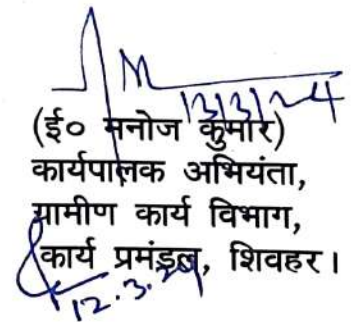 13/3/24
(ई० मनोज कुमार)
कार्यपालक अभियंता,
ग्रामीण कार्य विभाग,
कार्य प्रमंडल, शिवहर।
12.3.24